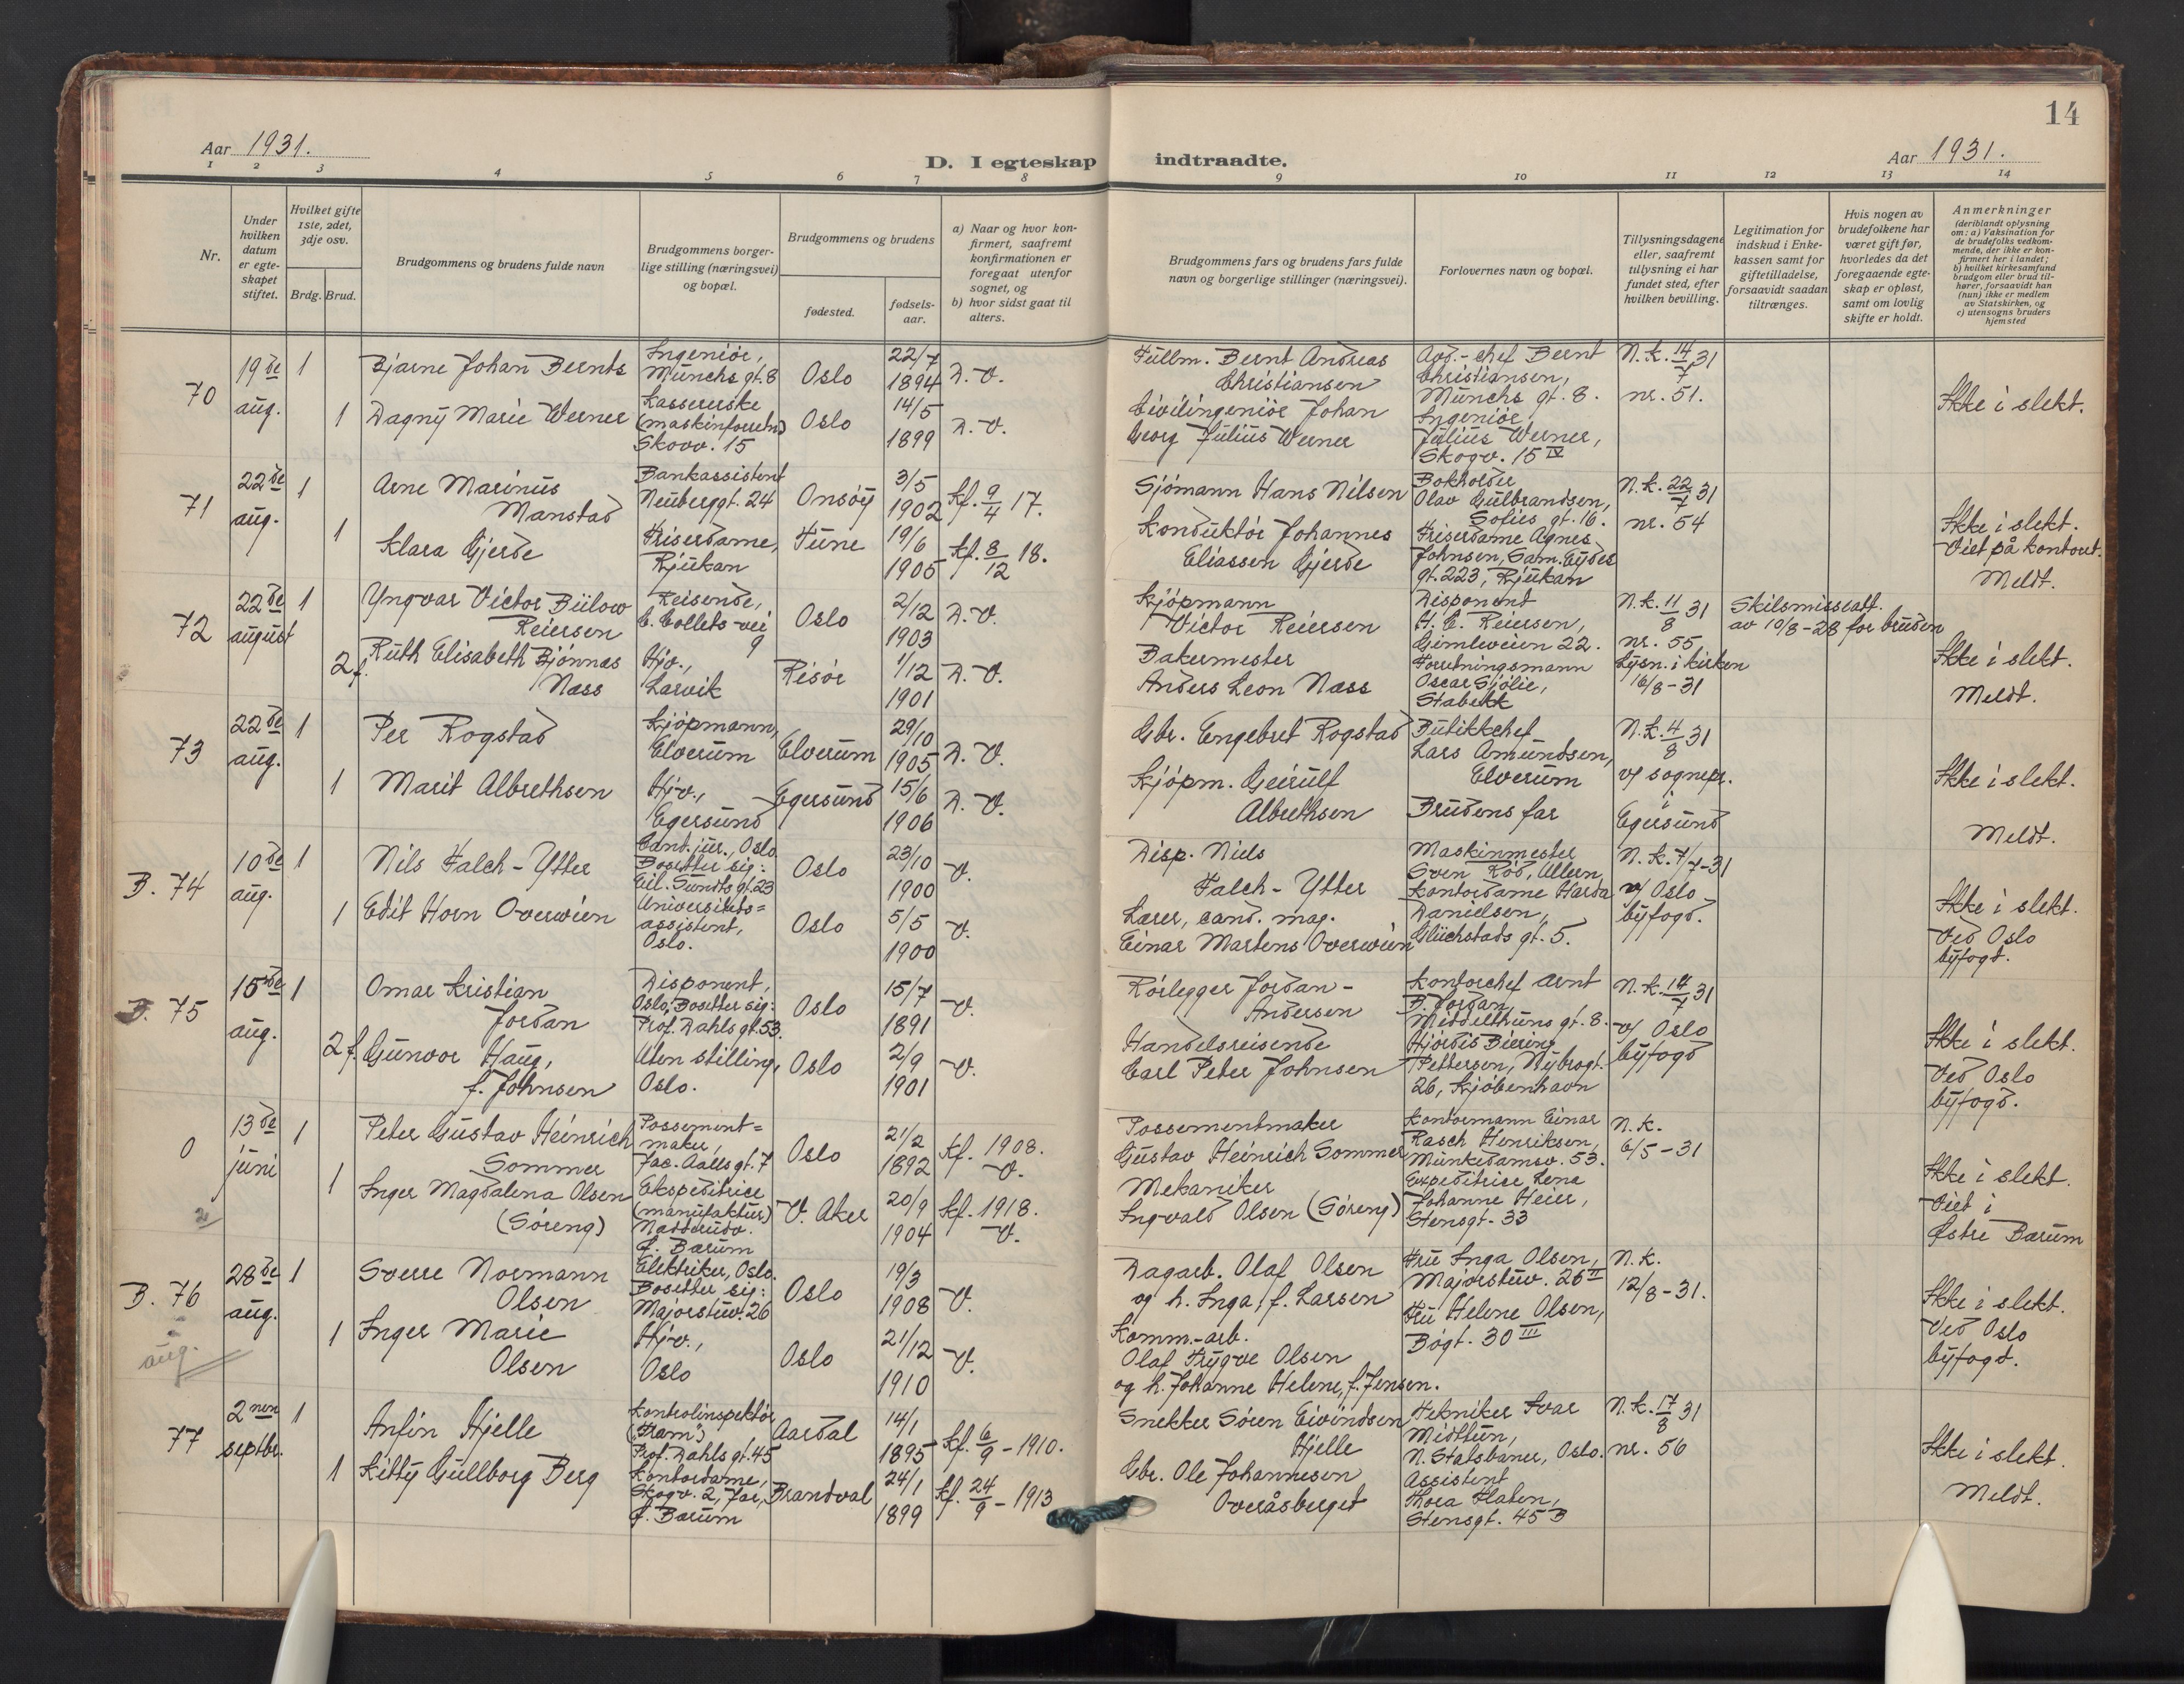 14
Aar 1931.
D. I egteskap indtraadte.
Aar 1931.
1 2 3 4 5 6 7 8 9 10 11 12 13 14
Nr.
Under
hvilken
datum
er egte-
skapet
stiftet.
Hvilket gifte
1ste, 2det,
3dje osv.
Brdg. Brud.
Brudgommens og brudens fulde navn
Brudgommens borger-
lige stilling (næringsvei)
og bopæl.
Brudgommens og brudens
fødested.
fødsels-
aar.
a) Naar og hvor kon-
firmert, saafremt
konfirmationen er
foregaat utenfor
sognet, og
b) hvor sidst gaat til
alters.
Brudgommens fars og brudens fars fulde
navn og borgerlige stillinger (næringsvei).
Forlovernes navn og bopæl.
Tillysningsdagene
eller, saafremt
tillysning ei har
fundet sted, efter
hvilken bevilling.
Legitimation for
indskud i Enke-
kassen samt for
giftetilladelse,
forsaavidt saadan
tiltrænges.
Hvis nogen av
brudefolkene har
været gift før,
hvorledes da det
foregaaende egte-
skap er opløst,
samt om lovlig
skifte er holdt.
Anmerkninger
(deriblandt oplysning
om: a) Vaksination for
de brudefolks vedkom-
mende, der ikke er kon-
firmert her i landet;
b) hvilket kirkesamfund
brudgom eller brud til-
hører, forsaavidt han
(hun) ikke er medlem
av Statskirken, og
c) utensogns bruders
hjemsted
70
19de
aug.
1
1
Bjarne Johan Bernts
Dagny Marie Werner
Ingeniør,
Munchs gt. 8
Kassererske
(maskinforretn)
Skovv. 15
Oslo
Oslo
22/7
1894
14/5
1899
D. V.
D. V.
Fullm. Bernt Andreas
Christiansen
Civilingeniør Johan
Georg Julius Werner
Avd.-chef Bernt
Christiansen,
Munchs gt. 8.
Ingeniør
Julius Werner,
Skogv. 15 IV
N. k. 14/7 31
nr. 51.
Ikke i slekt.
71
22de
aug.
1
1
Arne Marinus
Manstad
Klara Gjerde
Bankassistent
Neuberggt. 24
Friserdame,
Rjukan
Onsøy
Tune
3/5
1902
19/6
1905
kf. 9/4 17.
kf. 8/12 18.
Sjømann Hans Nilsen
Konduktør Johannes
Eliassen Gjerde
Bokholder
Olav Gulbrandsen,
Sofies gt. 16.
Friserdame Agnes
Johnsen, Sam. Eydes
gt. 223, Rjukan
N. k. 22/7 31
nr. 54
Ikke i slekt.
Viet på kontoret.
Meldt.
72
22de
august
1
2 f.
Yngvar Victor Bülow
Reiersen
Ruth Elisabeth Bjønnes
Næss
Reisende,
C. Collets vei
9
Hjv.,
Larvik
Oslo
Risør
2/12
1903
1/12
1901
D. V.
D. V.
Kjøpmann
Victor Reiersen
Bakermester
Anders Leon Næss
Disponent
H. C. Reiersen,
Gimleveien 22.
Forretningsmann
Oscar Sjølie,
Stabekk
N. k. 11/8 31
nr. 55
Lysn. i kirken
16/8-31
Skilsmisseatt.
av 10/8-28 for bruden
Ikke i slekt.
Meldt.
73
22de
aug.
1
1
Per Rogstad
Marit Albrethsen
Kjøpmann,
Elverum
Hjv.,
Egersund
Elverum
Egersund
29/10
1905
15/6
1906
D. V.
D. V.
Gbr. Engebret Rogstad
Kjøpm. Geirulf
Albrethsen
Butikkchef
Lars Amundsen,
Elverum
Brudens far
N. k. 4/8 31
v/ sognepr.
i
Egersund
Ikke i slekt.
Meldt.
B. 74
10de
aug.
1
1
Nils Falch-Ytter
Edit Horn Overwien
Cand. jur., Oslo
Bosetter sig:
Eil. Sundts gt. 23
Universitets=
assistent,
Oslo.
Oslo
Oslo
23/10
1900
5/5
1900
V.
V.
Disp. Niels
Falch-Ytter
Lærer, cand. mag.
Einar Martens Overwien
Maskinmester
Sven Rød, Ullern
Kontordame Harda
Danielsen,
Glückstads gt. 5.
N. k. 7/7-31
v/ Oslo
byfogd.
Ikke i slekt.
Ved Oslo
byfogd.
B. 75
15de
aug.
1
2 f.
Omar Kristian
Jordan
Gunvor Haug,
f. Johnsen
Disponent,
Oslo, Bosetter sig:
Prof. Dahls gt. 53.
Uten stilling,
Oslo.
Oslo
Oslo
15/7
1891
2/9
1901
V.
V.
Rørlegger Jordan-
Andersen
Handelsreisende
Carl Peter Johnsen
Kontorchef Arnt
B. Jordan,
Middelthuns gt. 8.
Hjørdis Biering
Pettersen, Nybrogt.
26, Kjøbenhavn
N. k. 14/7 31
v/ Oslo
byfogd
Ikke i slekt.
Ved Oslo
byfogd.
0
13de
juni
1
1
Peter Gustav Heinrich
Sommer
Inger Magdalena Olsen
(Søreng)
Possement=
maker,
Jac. Aallsgt. 7
Ekspeditrice
(manufaktur)
Nadderudv.
Ø. Bærum
Oslo
V. Aker
21/2
1892
20/9
1904
kf. 1908.
V.
kf. 1918.
V.
Possementmaker
Gustav Heinrich Sommer
Mekaniker
Ingvald Olsen (Søreng)
Kontormann Einar
Rasch Henriksen,
Munkedamsv. 53.
Expeditrice Lena
Johanne Heier,
Stensgt. 33
N. k.
6/5-31
Ikke i slekt.
Viet i
Østre Bærum
B. 76
aug.
28de
aug.
1
1
Sverre Normann
Olsen
Inger Marie
Olsen
Elektriker, Oslo.
Bosetter sig:
Majorstuv. 26
Hjv.,
Oslo
Oslo
Oslo
19/3
1908
21/12
1910
V.
V.
Dagarb. Olaf Olsen
og h. Inga, f. Larsen
Komm.-arb.
Olaf Trygve Olsen
og h. Johanne Helene, f. Jensen.
Fru Inga Olsen,
Majorstuv. 26 II
Fru Helene Olsen,
Bøgt. 30 III
N. k.
12/8-31.
Ikke i slekt.
Ved Oslo
byfogd.
77
2nen
septbr.
1
1
Anfin Hjelle
Kitty Gullborg Berg
Kontrolinspektør
("Fram")
Prof. Dahls gt. 45
Kontordame,
Skogv. 2, Jar,
Ø. Bærum
Aardal
Brandval
14/1
1895
24/1
1899
kf. 6/9-1910.
kf. 24/9-1913
Snekker Søren Eivindsen
Hjelle
Gbr. Ole Johannesen
Overåsberget
Tekniker Ivar
Midttun,
N. Statsbaner, Oslo.
Assistent
Thora Flaten,
Stensgt. 45 B
N. k. 17/8 31
nr. 56
Ikke i slekt.
Meldt.